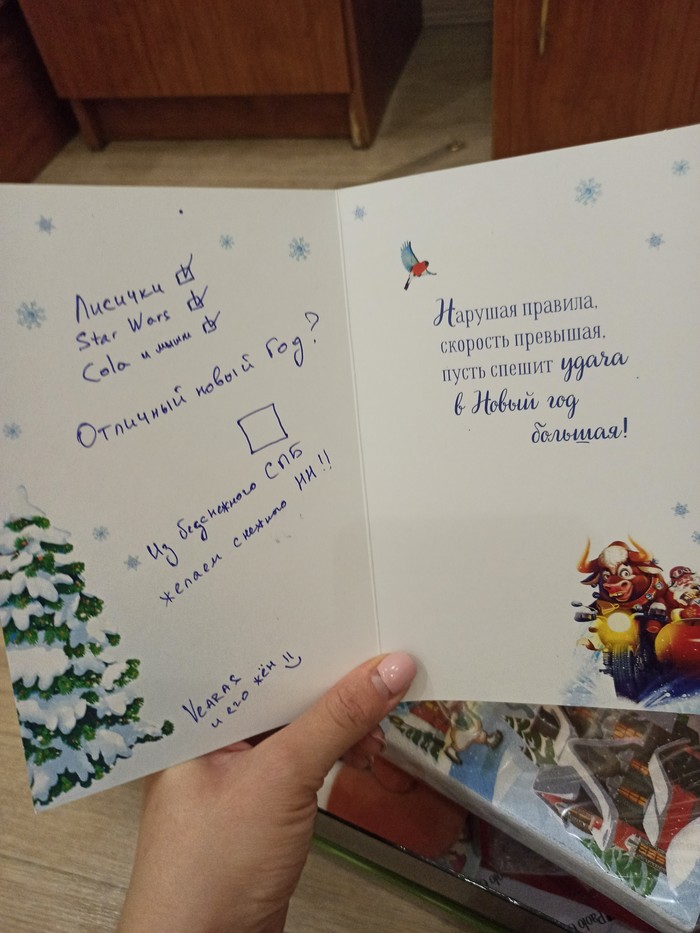 Лисички
Star Wars
Cola и мыши
Отличный новый год?
Из безснежного СПБ
желаем снежного НН!!
VEARAS
и его жён!!
Нарушая правила,
скорость превышая,
пусть спешит удача
в Новый год
большая!